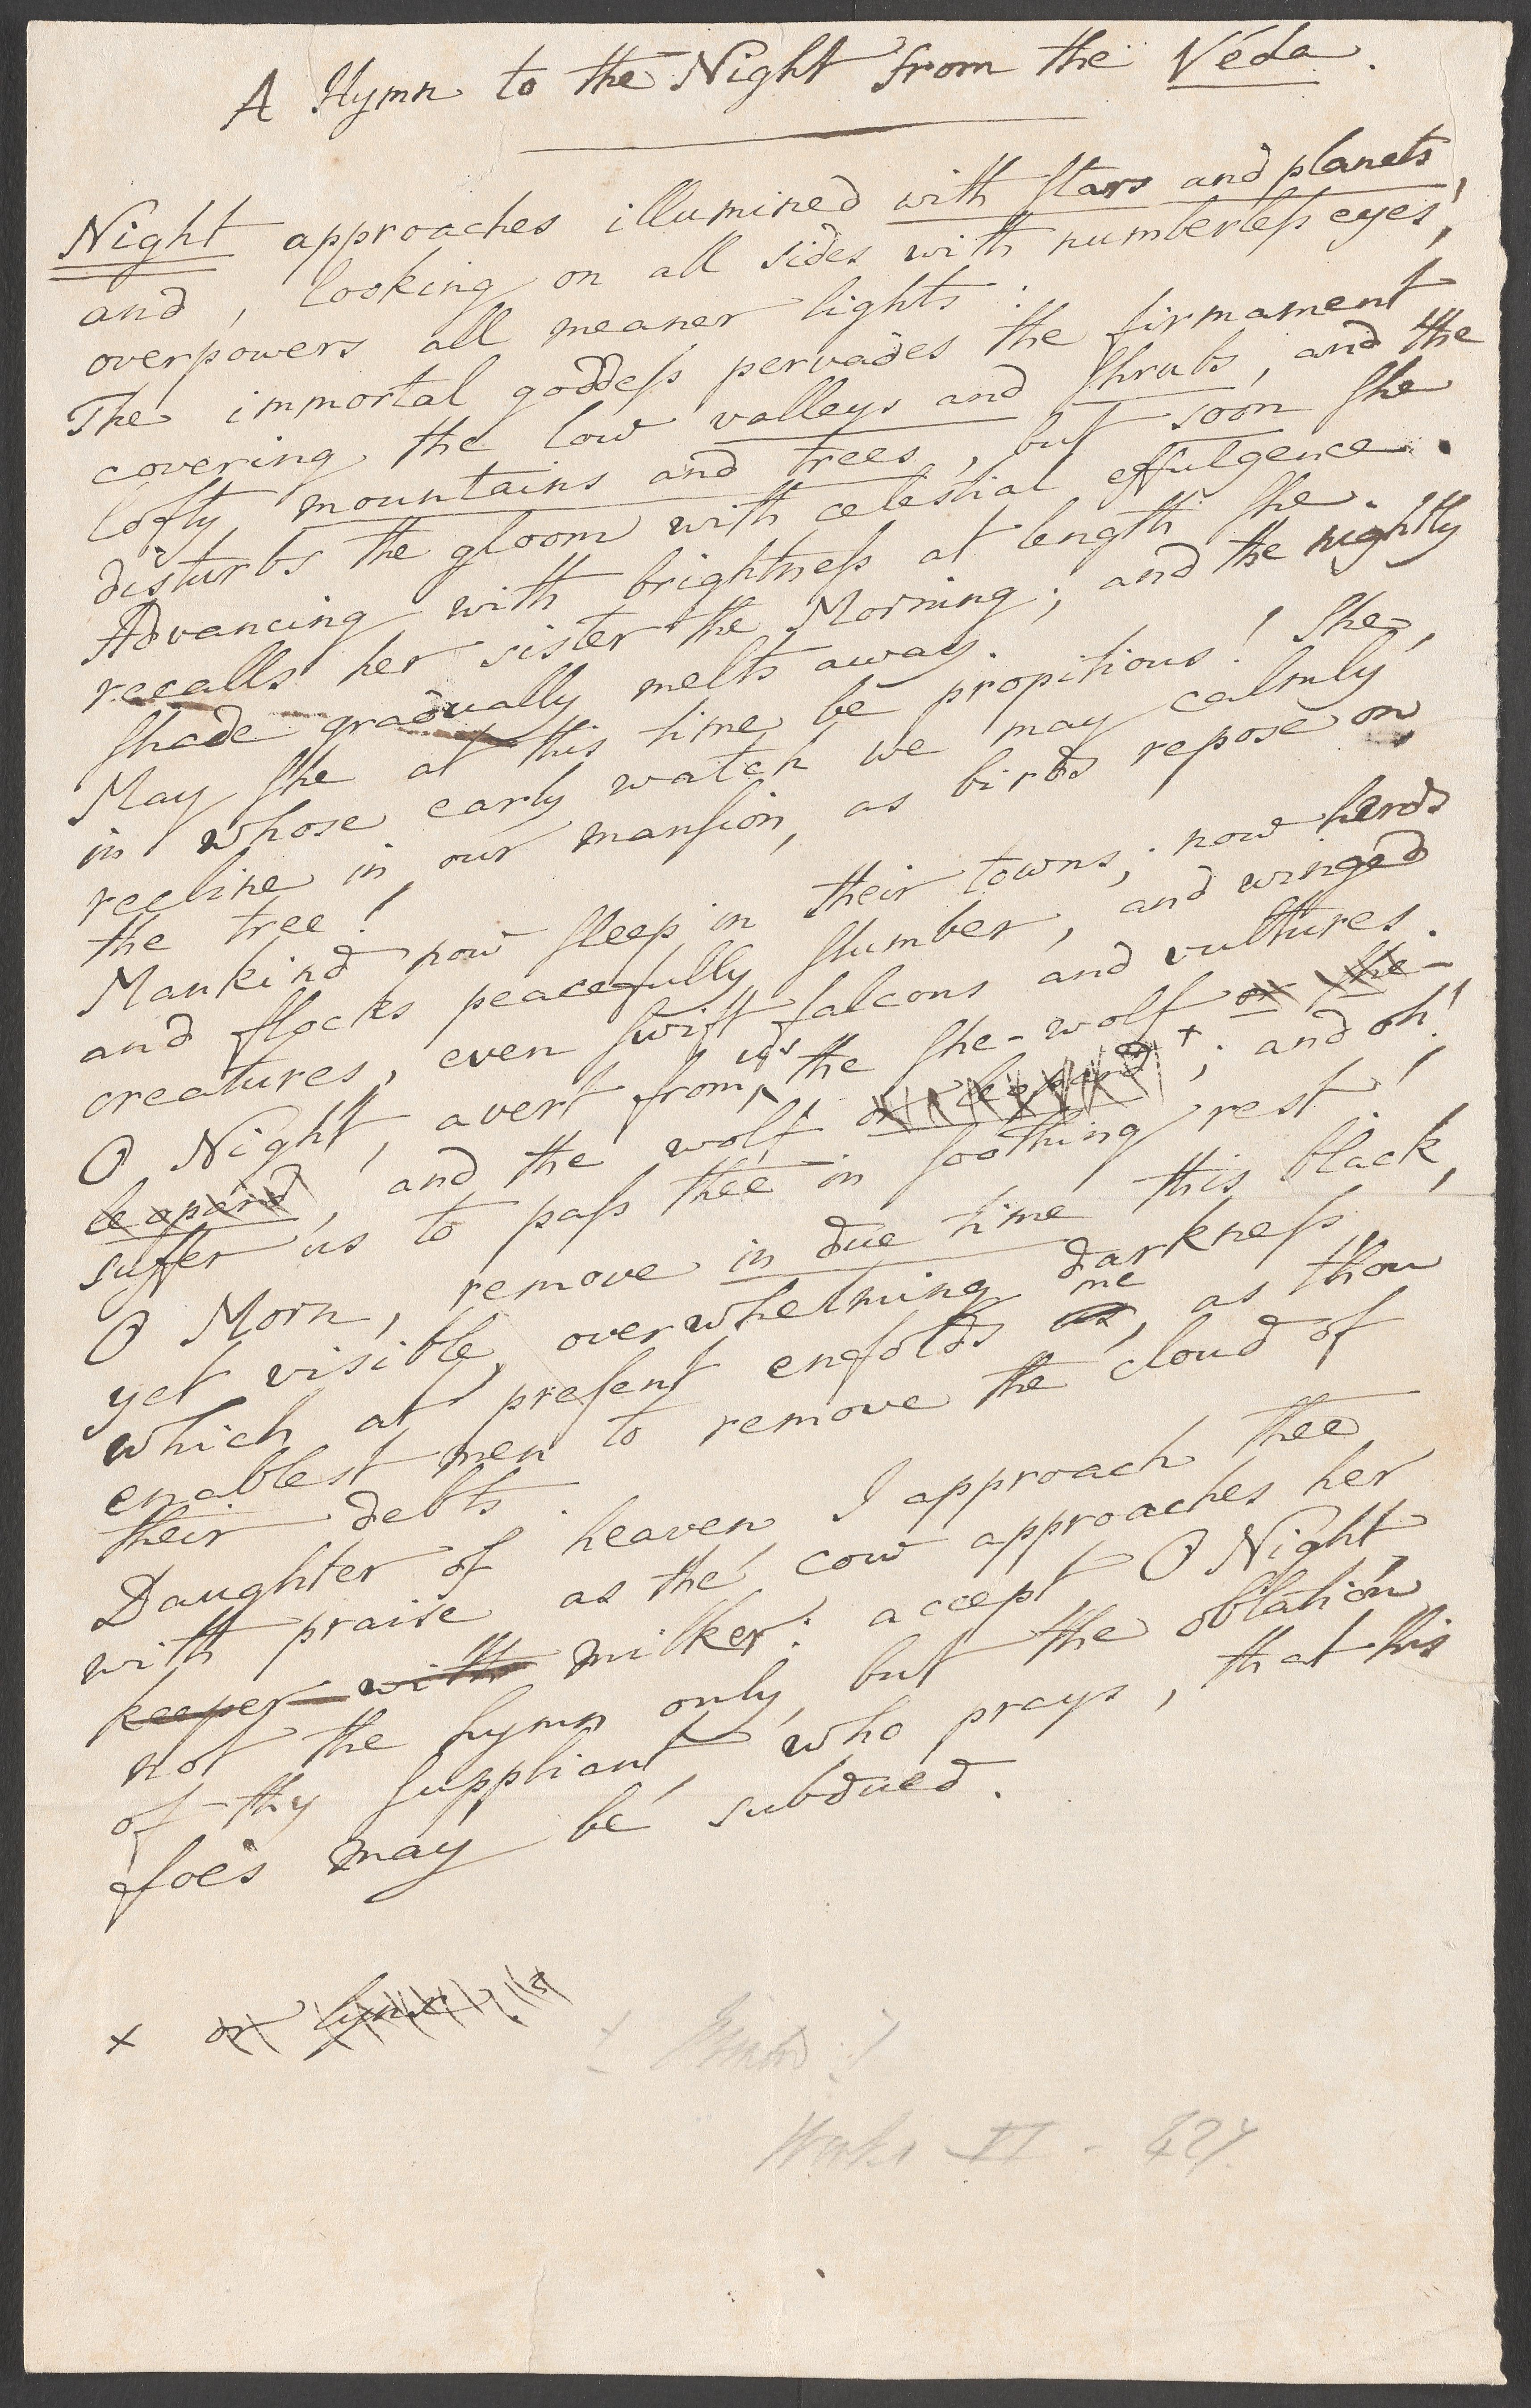 A Hymn to the Night from the Véda.
Night approaches illumined with stars and planets,
and, looking on all sides with numberless eyes,
overpowers all meaner lights:
The immortal goddess pervades the firmament
covering the low valleys and shrubs, and the
lofty mountains and trees, but soon she
disturbs the gloom with celestial effulgence.
Advancing with brightness at length she
recalls her sister the Morning; and the nightly
shade gradually melts away.
May she at this time be propitious! She,
in whose early watch we may calmly
recline in our mansion, as birds repose on
the tree!
Mankind now sleep in their towns; now herds
and flocks peacefully slumber, and winged
creatures, even swift falcons and vultures.
O Night, avert from us the she-wolf or she-
leopard, and the wolf or leopard +; and oh!
suffer us to pass thee in soothing rest!
O Morn, remove in due time this black,
yet visible, overwhelming darkness
which at present enfolds us, me as thou
enablest men to remove the cloud of
their debts.
Daughter of heaven, I approach thee
with praise as the cow approaches her
keeper with milker: accept O Night,
not the hymn only, but the oblation
of thy suppliant, who prays, that his
foes may be subdued.
x or
Works VI - 427